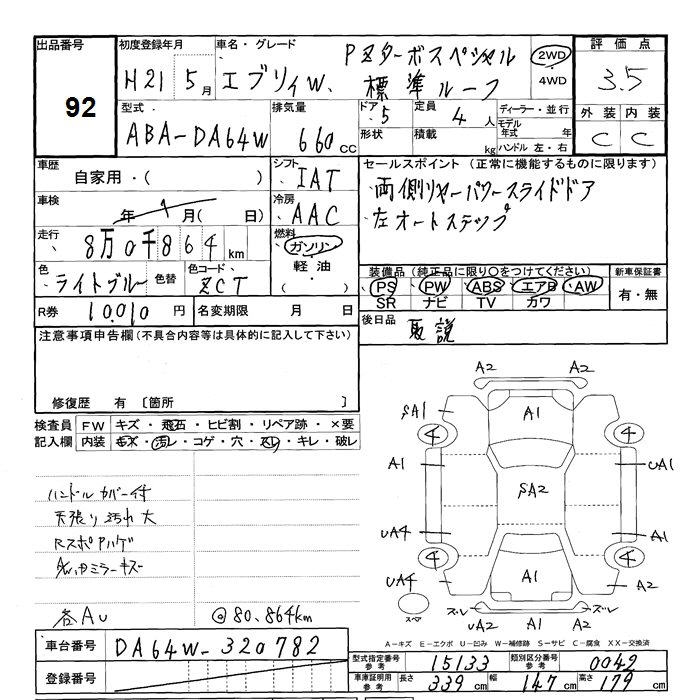 出品番号
92
初度登録年月
H21 5月
車名・グレード
エブリィW. PZターボスペシャル
標準ルーフ
2WD
4WD
評価点
3.5
外装 内装
C C
型式
ABA-DA64W
排気量
660cc
ドア 5
形状
定員 4人
積載 kg
ディーラー・並行
モデル年式 年
ハンドル 左・右
車歴
自家用・( )
車検
年 月( 日)
走行
8万0千864km
色
ライトブルー
色替
色コード
ZCT
シフト
IAT
冷房
AAC
燃料
ガソリン
軽油
( )
セールスポイント (正常に機能するものに限ります)
両側リヤーパワースライドドア
左オートステップ
装備品 (純正品に限り○をつけてください)
PS PW ABS エアB AW
SR ナビ TV カワ
新車保証書
有・無
R券 10,010円
名変期限 月 日
後日品
取説
注意事項申告欄(不具合内容等は具体的に記入して下さい)
修復歴 有 〔箇所 〕
検査員記入欄
FW キズ・飛石・ヒビ割・リペア跡・×要
内装 キズ・汚レ・コゲ・穴・スレ・キレ・破レ
ハンドルカバー付
天張り汚れ大
RスポAハゲ
各AU
@80,864km
A2 A2
SA1 A1
4 4
A1 UA1
SA2
UA4 A1
4 4
UA4 A1 A2
スペア
ズレ ズレ
UA2 A1 A2
A-キズ E-エクボ U-凹み W-補修跡 S-サビ C-腐食 XX-交換済
車台番号 DA64W-320782
登録番号
型式指定番号 参考 15133
類別区分番号 参考 0042
車庫証明用 参考 長さ 339cm 幅 147cm 高さ 179cm